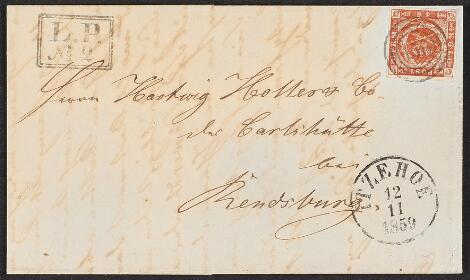 L.P.
No 2
Herrn Hartwig Holler & Co
der Carlshütte
bei
Rendsburg
ITZEHOE
12
11
1859